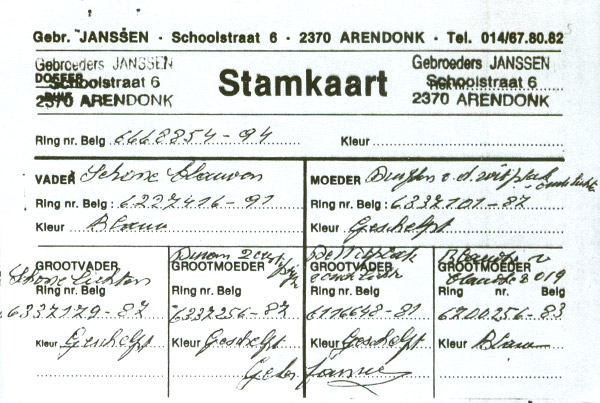 Gebr. JANSSEN - Schoolstraat 6 - 2370 ARENDONK - Tel. 014/67.80.82
Gebroeders JANSSEN
DOFFER
Schoolstraat 6
2370 ARENDONK
Stamkaart
Gebroeders JANSSEN
Schoolstraat 6
2370 ARENDONK
Ring nr. Belg 6668854-94 Kleur
VADER Schone Blauwen
Ring nr. Belg : 6227416-91
Kleur Blauw
MOEDER v. d.
Ring nr. Belg : 6337101-87
Kleur Geschelpt
GROOTVADER
Schone Lichten
Ring nr. Belg
6337179-87
Kleur Geschelpt
GROOTMOEDER
Ring nr. Belg
6337256-87
Kleur Geschelpt
De Witpluk
GROOTVADER
Ring nr. Belg
6116648-81
Kleur Geschelpt
GROOTMOEDER
019
Ring nr. Belg
6700256-83
Kleur Blauw
Gebr. Janssen